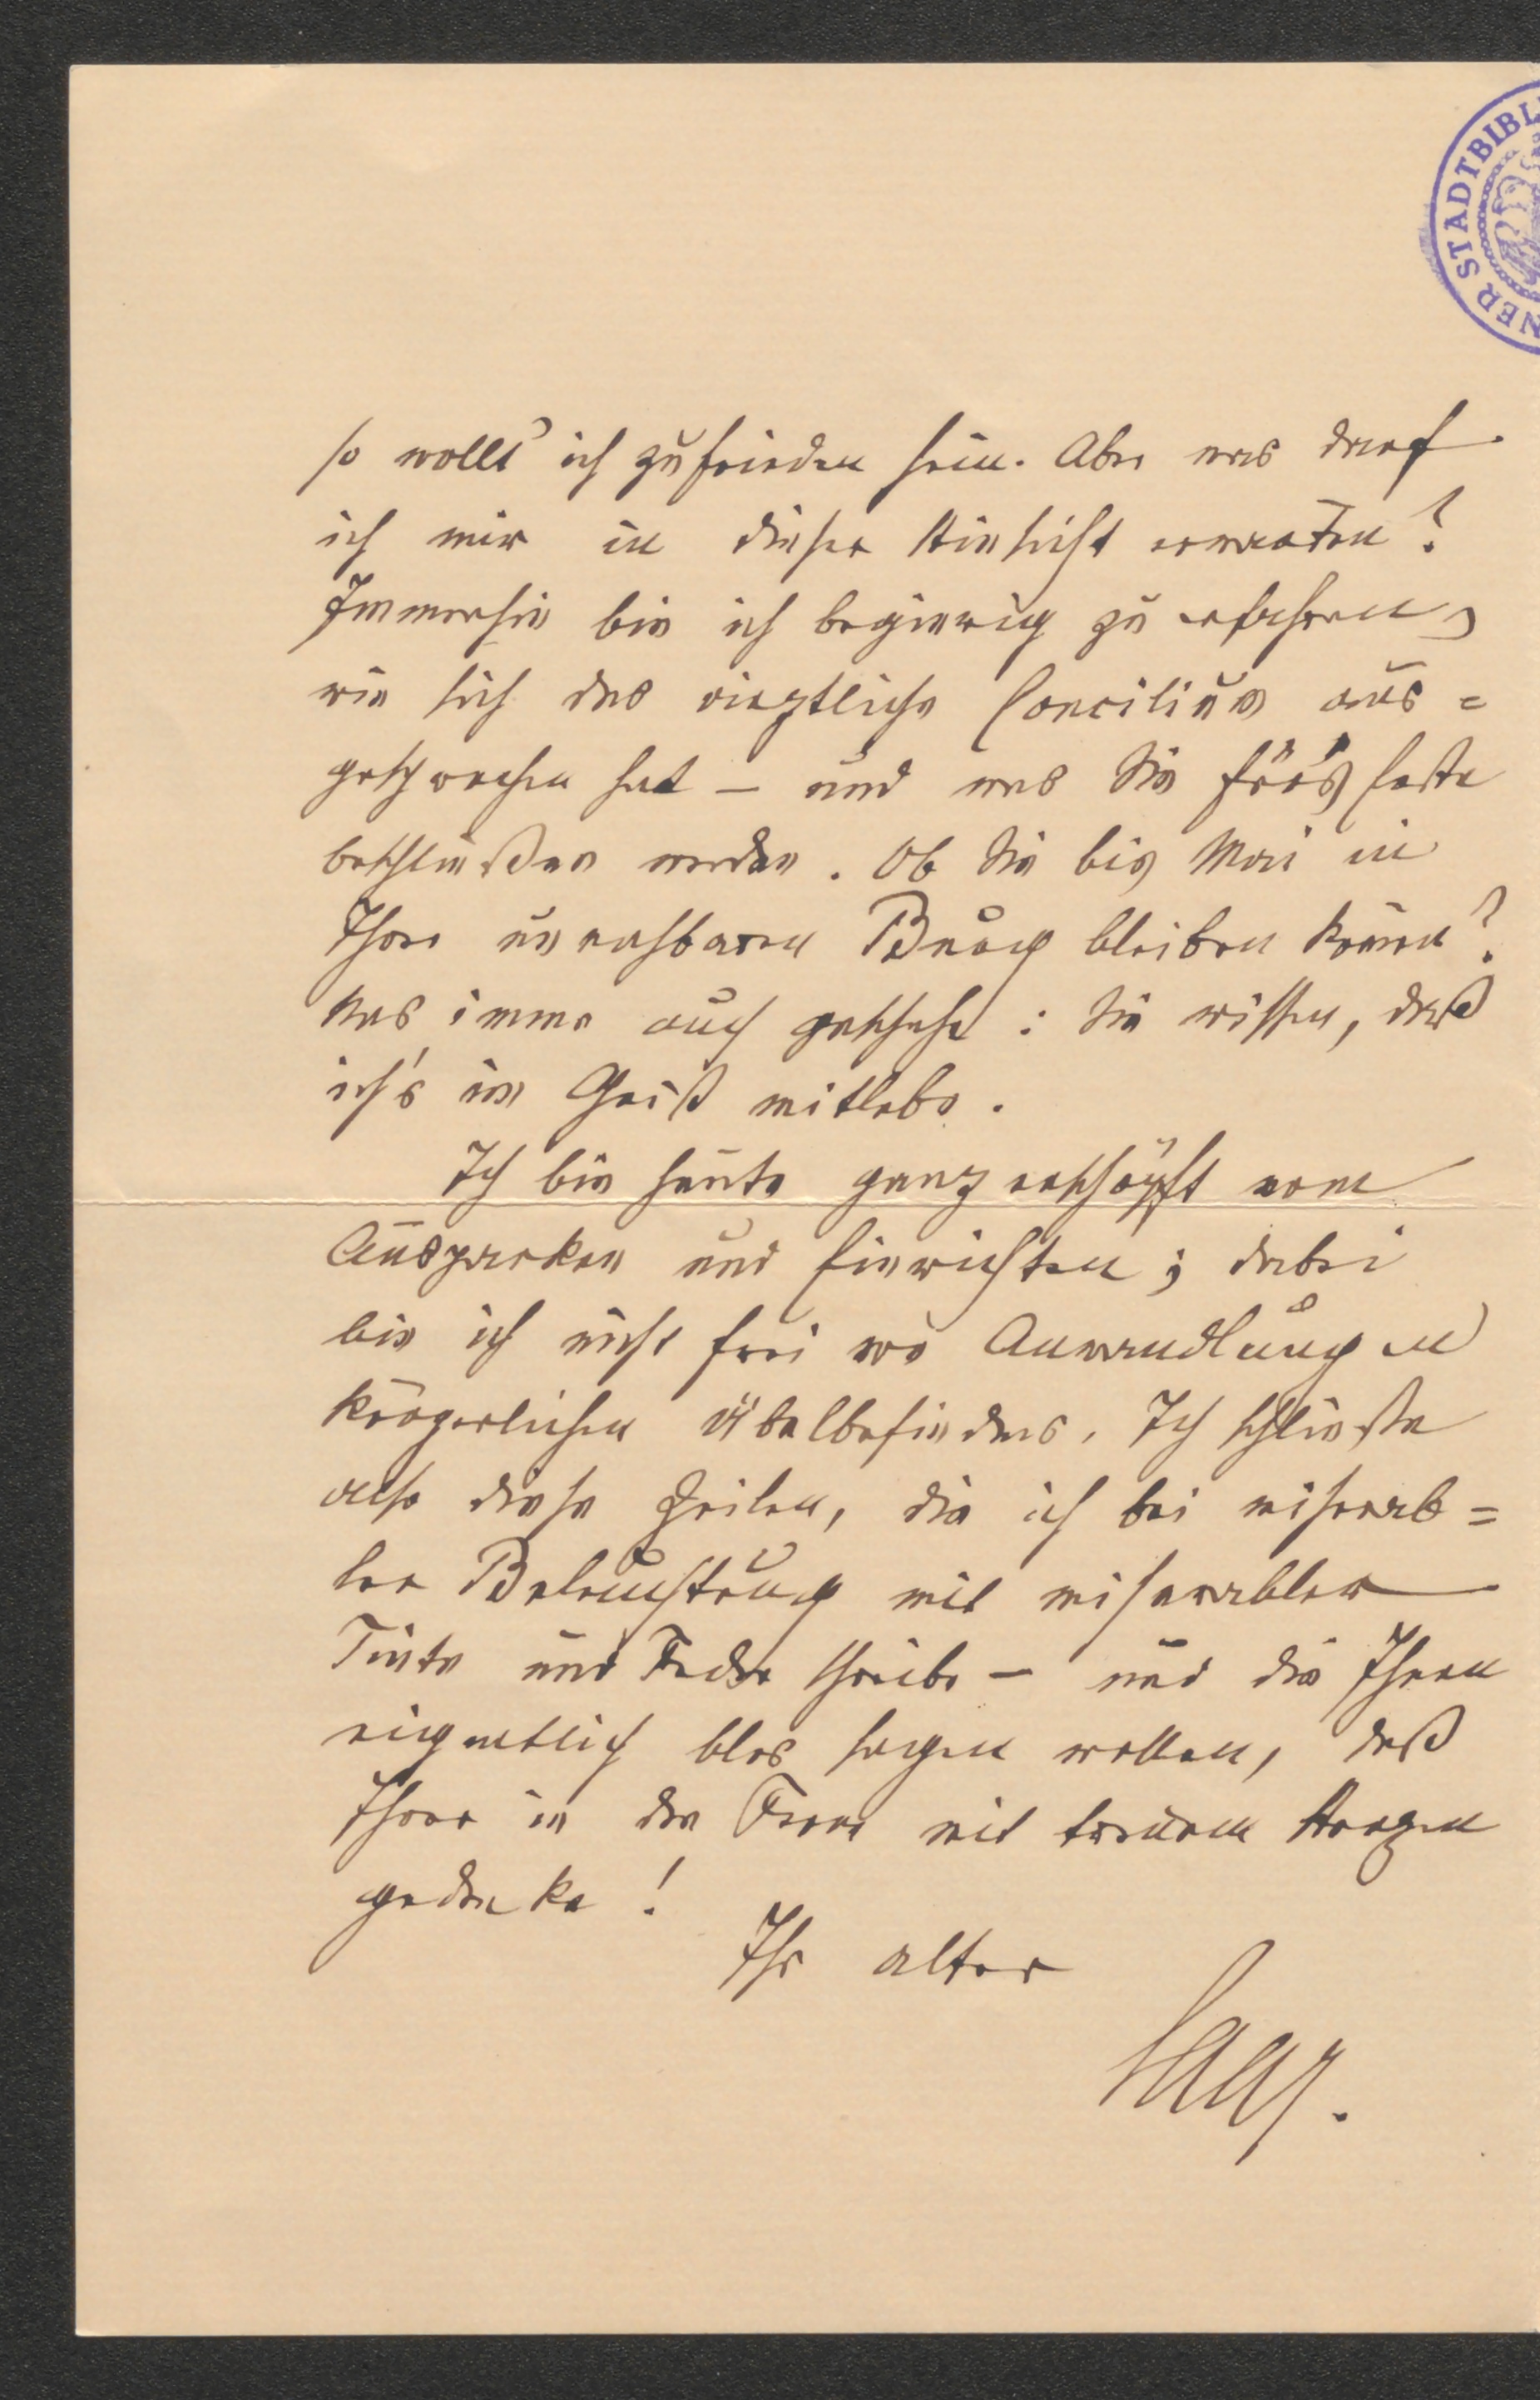 STADTBIBL
NER
so wollt' ich zufrieden sein. Aber was darf
ich mir in dieser Hinsicht erwarten?
Immerhin bin ich begierig zu erfahren,
wie sich das ärztliche Concilium aus=
gesprochen hat – und was Sie für's Erste
beschließen werden. Ob Sie bis Mai in
Ihrer unnahbaren Burg bleiben können?
Was immer auch geschehe: Sie wissen, daß
ich's im Geist mitlebe.
Ich bin heute ganz erschöpft vom
Auspacken und Einrichten; dabei
bin ich nicht frei von Anwandlungen
körperlichen Übelbefindens. Ich schließe
also diese Zeilen, die ich bei miserab=
ler Beleuchtung mit miserabler
Tinte und Feder schreibe – und die Ihnen
eigentlich blos sagen wollen, daß
Ihrer in der Ferne mit treuem Herzen
gedenke!
Ihr alter
Saar.